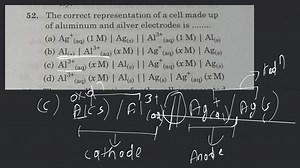 52. The correct representation of a cell made up
of aluminum and silver electrodes is ........
(a) Ag⁺(aq) (1 M) | Ag(s) || Al³⁺(aq) (1 M) | Al(s)
(b) Al(s) | Al³⁺(aq) (x M) || Ag⁺(aq) (x M) | Ag(s)
(c) Al³⁺(aq) (x M) | Al(s) | Ag(s) | Ag⁺(aq) (x M)
(d) Al³⁺(aq) (x M) | Ag⁺(aq) (x M) | Ag(s) | Al(s)
redⁿ
oxdⁿ
(c) Al(s) / Al³⁺(aq) || Ag⁺(aq) / Ag(s)
Cathode Anode